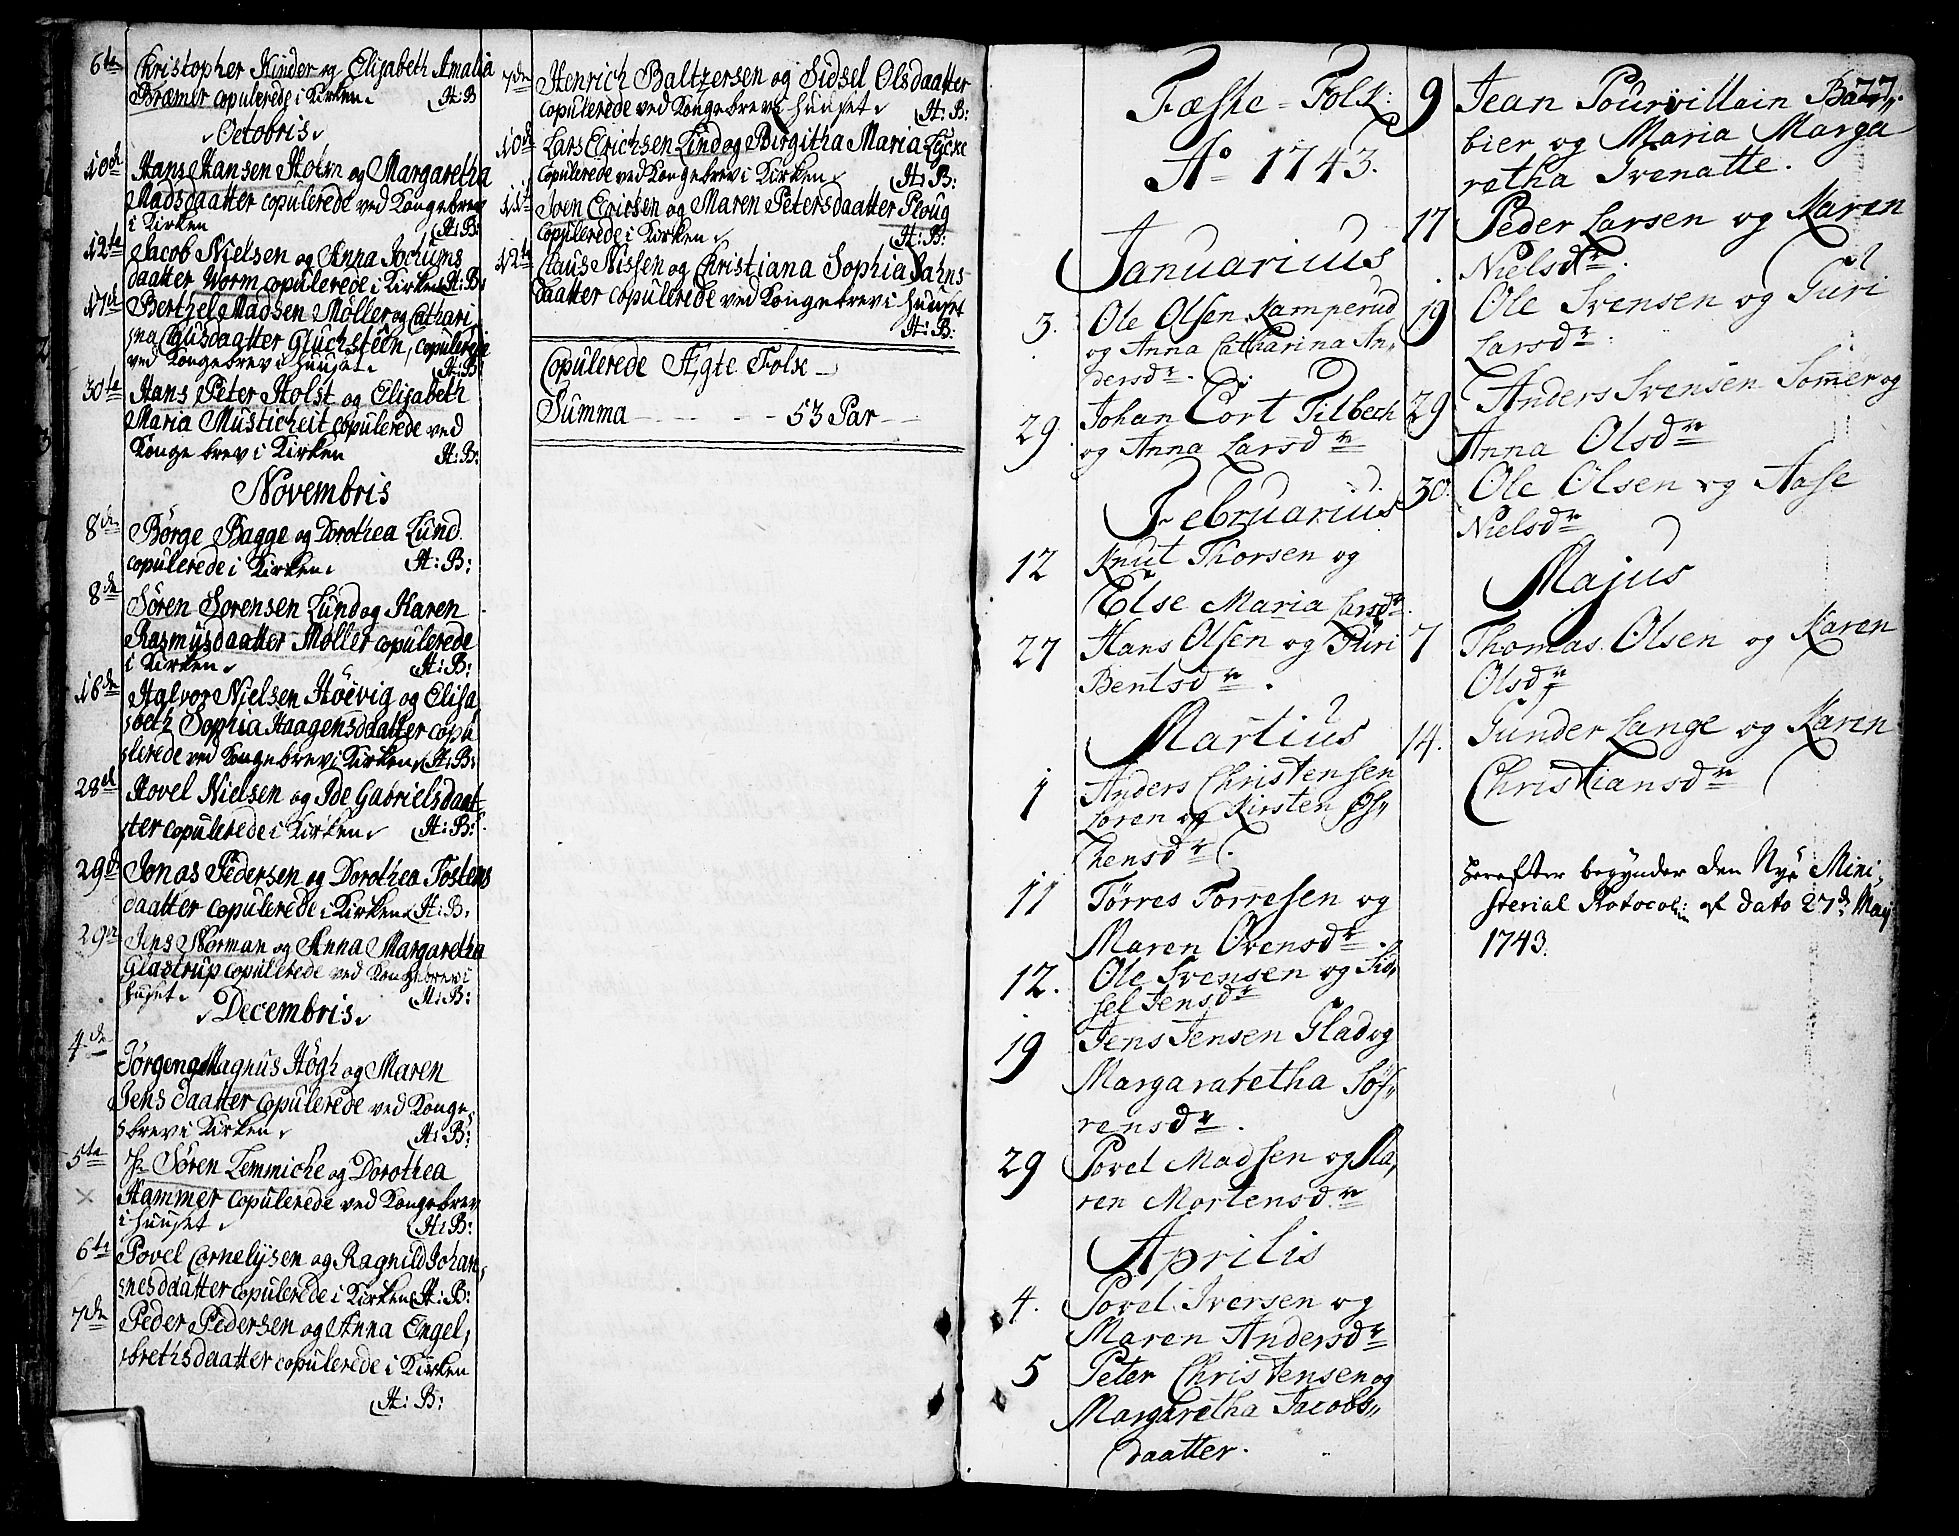 6te Christopher Hinder og Elisabeth Amalia
Bræmer copulerede i Kirken. H:B
Octobris
10de Hans Hansen Holm og Margaretha
Madsdaatter copulerede ved Kongebrev
i Kirken H:B:
12te Jacob Nielsen og Anna Jochums
daatter Worm copulerede i Kirken H:B:
17de Berthel Madsen Møller og Cathari
na Clausdaatter Gluchsteen, copulerede
ved Kongebrev i Huuset. H:B
30te Hans Peter Holst og Elisabeth
Maria Musticheit copulerede ved
Konge brev i Kirken H:B:
Novembris
8de Börge Bagge og Dorothea Lund
copulerede i Kirken. H:B:
8de Sören Sorensen Lund og Karen
Rasmusdaatter Møller copulerede
i Kirken H:B:
16de Halvor Nielsen Höevig og Elisa
beth Sophia Haagensdaatter copu
lerede ved Kongebrev i Kirken H:B:
28de Hovel Nielsen og Ide Gabrielsdaat
ter copulerede i Kirken H:B:
29de Jonas Pedersen og Dorothea Tostens
daatter copulerede i Kirken H:B:
29de Jens Norman og Anna Margaretha
Glastrup copulerede ved Kongebrev i
huset. H:B:
Decembris
4de Jörgen Magnus Högh og Maren
Jensdaatter copulerede ved Konge
brev i Kirken H:B:
5te Hr Sören Lemmiche og Dorothea
Hammer copulerede ved Kongebrev
i huuset H:B:
6te Povel Cornelÿsen og Ragnild Johan
nesdaatter copulerede i Kirken H:B:
7de Peder Pedersen og Anna Engel,
brethsdaatter copulerede i Kirken
H:B:
7de Henrich Baltzersen og Sidsel Olsdaatter
copulerede ved Kongebrev i huuset H:B:
10de Lars Erichsen Lind og Birgitha Maria Lycke
copulerede ved Kongebrev i Kirken H:B:
11te Iven Ericsen og Maren Petersdaatter Ploug
copulerede i Kirken H:B:
12te Claus Nissen og Christiana Sophia Jahns
daatter copulerede ved Kongebrev i huuset
H:B:
Copulerede Ægte Folk
Summa 53 Par
Fæste-Folk:
Ao 1743.
Januarius
3. Ole Olsen Kamperud
og Anna Catharina An,,
dersdr.
29. Johan Cort Tilbech
og Anna Larsdr
Februarius
12 Knut Thorsen og
Else Maria Larsdr.
27 Hans Olsen og Guri
Bentsdr.
Martius
1 Anders Christensen
Loren og Kirsten Øs,,
thensdr.
11 Törres Torresen og
Maren Ovensdr.
12. Ole Svensen og Sid,,
sel Jensdr
19 Jens Jensen Glad og
Margaratetha Sös,,
rensdr.
29 Povel Madsen og Ka,,
ren Mortensdr
Aprilis
4. Povel Iversen og
Maren Andersdr
5 Peter Christensen og
Margaretha Jacobs,,
daatter.
77.
9 Jean Pourvillain Bar,,
bier og Maria Marga
retha Svenatte.
17 Peder Larsen og Karen
Nielsdr.
19 Ole Svensen og Guri
Larsdr.
29 Anders Svensen Somer og
Anna Olsdr
30. Ole Olsen og Aase
Nielsdr
Majus
7 Thomas Olsen og Karen
Olsdr
14. Gunder Lange og Karen
Christiansdr
Herefter begynder den Nye Mini,
sterial Protocol: af dato 27de Maÿ
1743.